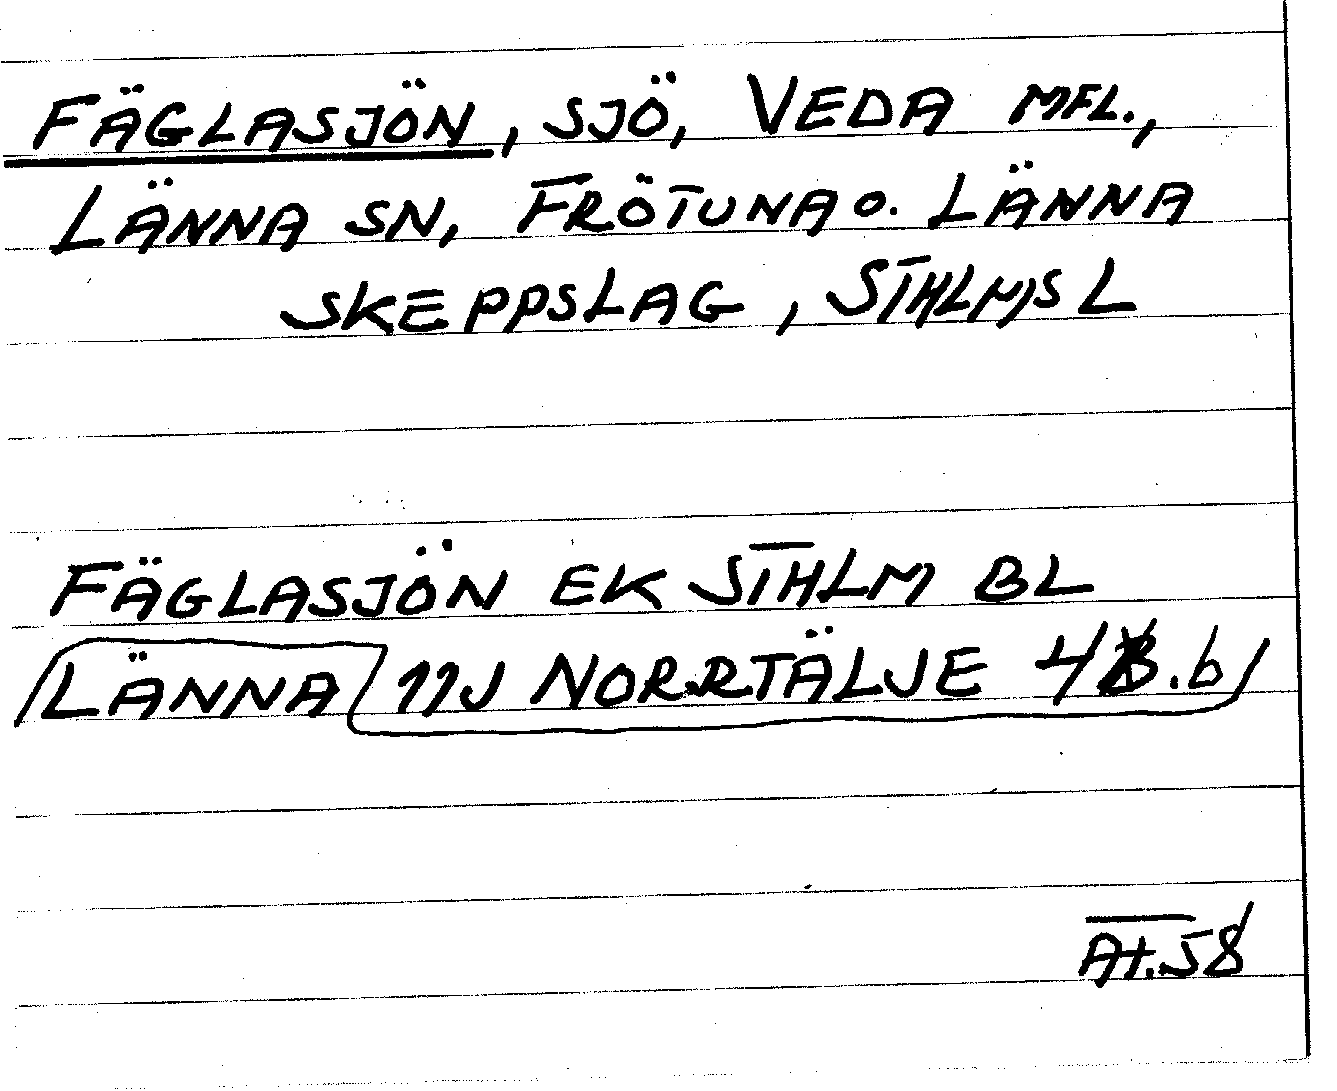 FÄGLASJÖN, SJÖ, VEDA MFL.,
LÄNNA SN, FRÖTUNA O. LÄNNA
SKEPPSLAG, STHLMS L
FÄGLASJÖN EK STHLM BL
LÄNNA 11J NORRTÄLJE 4 .b
AH.58